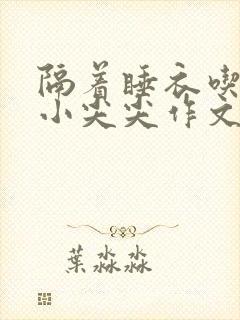 隔着睡衣喫
小尖尖作文
葉淼淼